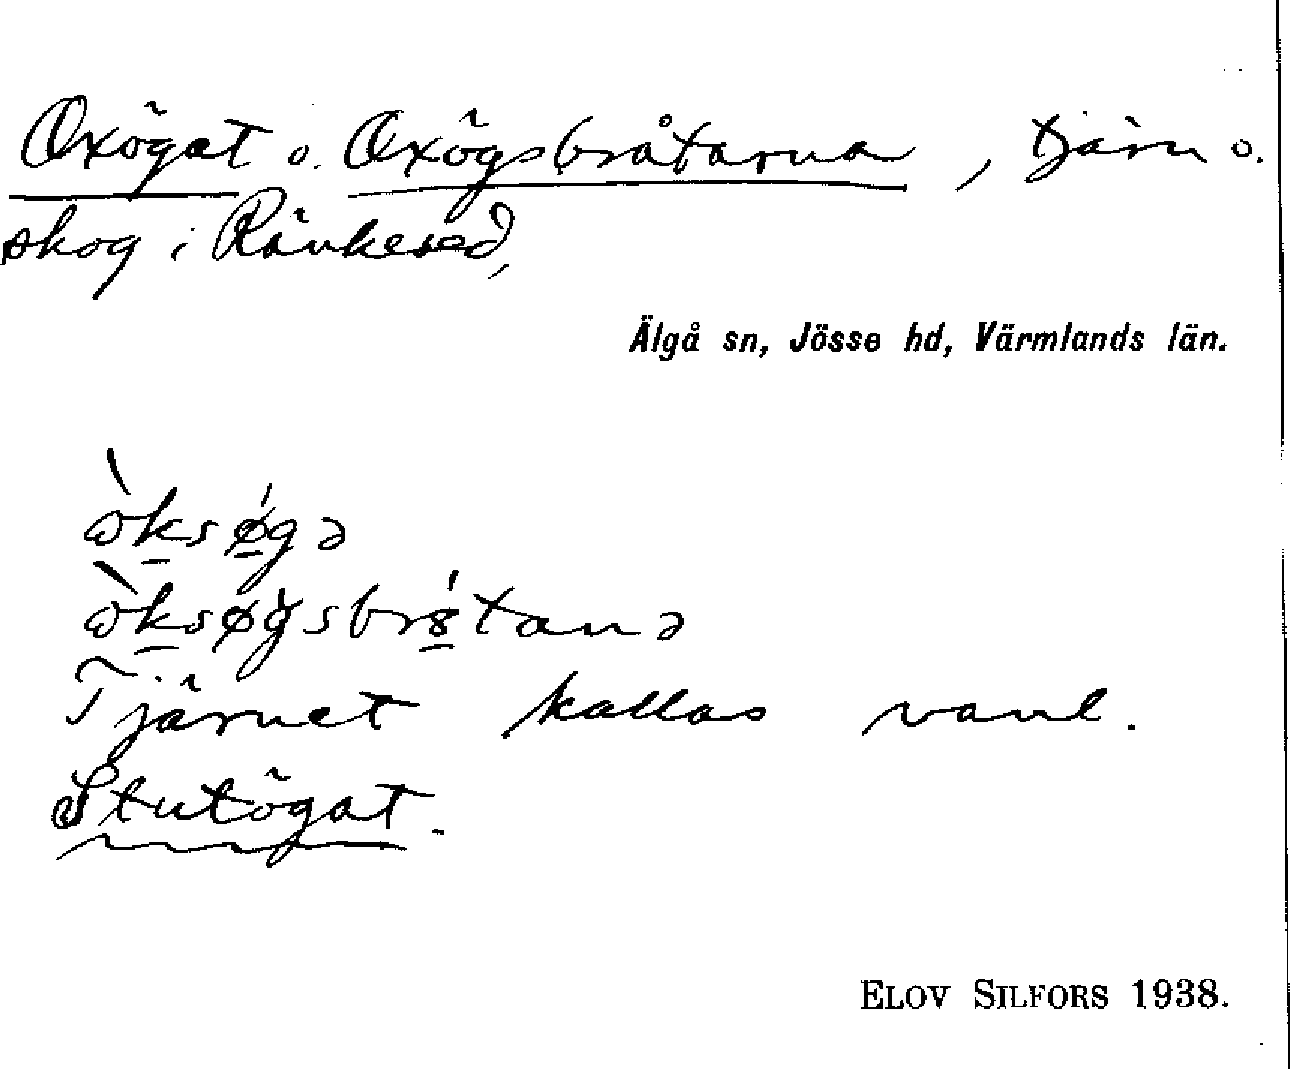 Oxögat o. Oxögsbråtarna, tjärn o.
skog i Ränkesed,
Älgå sn, Jösse hd, Värmlands län.
òksǿ̱gə
òksøgsbrś̱tanə
Tjärnet kallas vanl.
Stutögat.
ELOV SILFORS 1938.